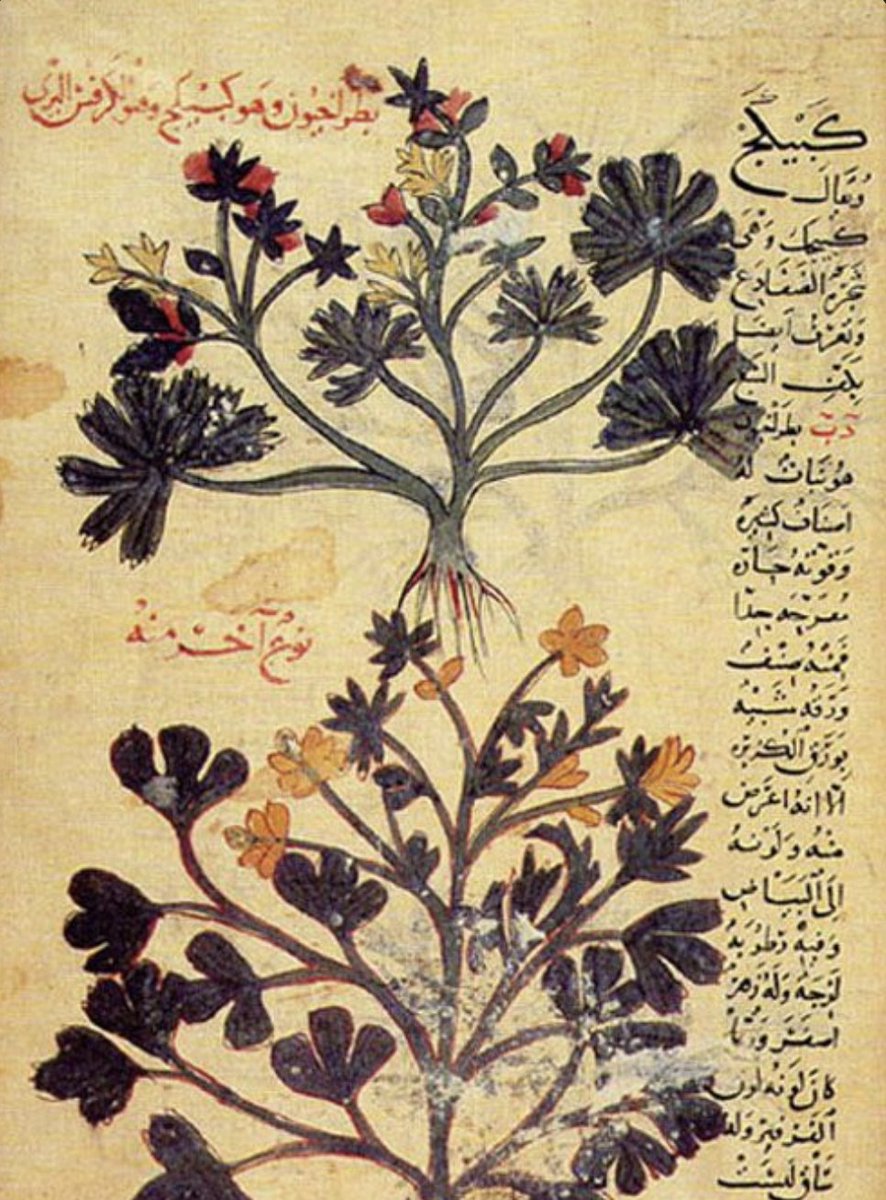 بطراخيون وهو كبيكج وهو الكرفس البري
كبيكج
ويقال
كبيكك وهي
شجرة الضفادع
وتعرف ايضا
بكف السبع
بطراخيون
هو نبات له
اصناف كثيرة
وقوته حادة
مقرحة جدا
فمنه صنف
ورقه شبيه
بورق الكزبرة
الا انه اعرض
منه ولونه
الى البياض
وفيه رطوبة
لزجة وله زهر
اصفر وربما
كان لونه لون
الفرفير وله
ساق ليست
نوع آخر منه